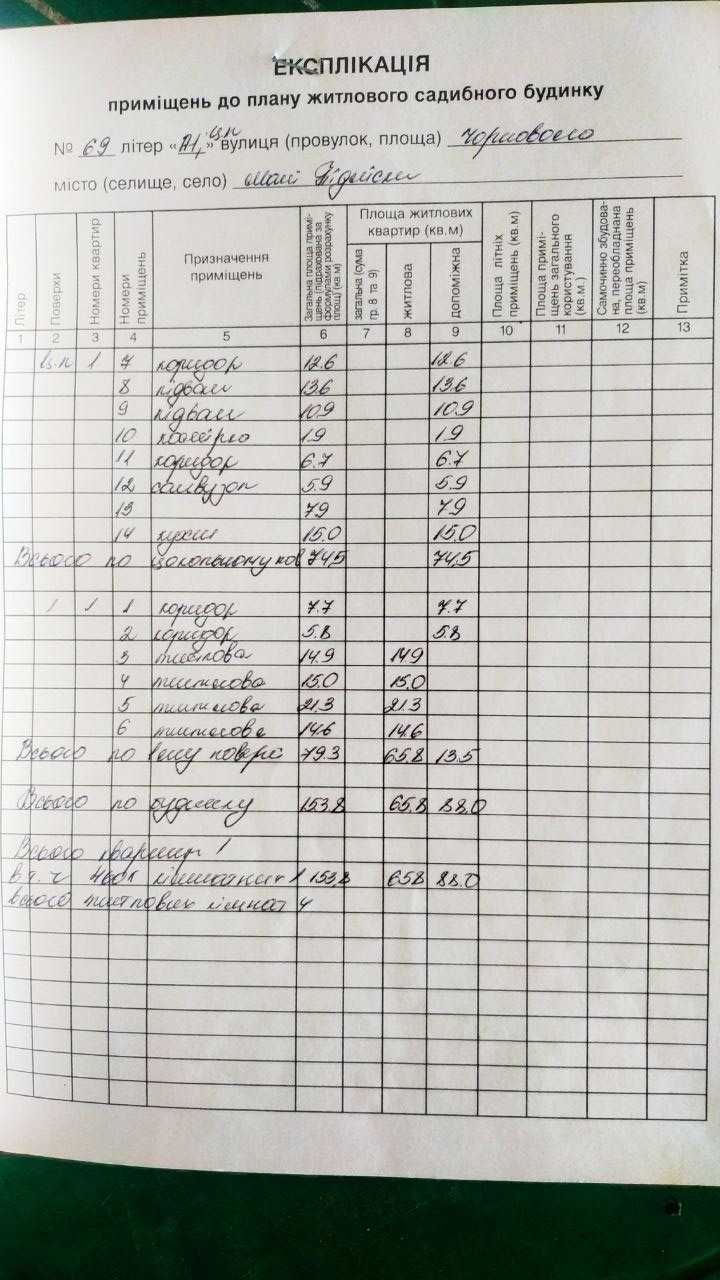 ЕКСПЛІКАЦІЯ
приміщень до плану житлового садибного будинку
№ 69 літер «А1, ц.п» вулиця (провулок, площа) Чорновола
місто (селище, село) Малі Підліски
Літер Поверхи Номери квартир Номери приміщень Призначення приміщень Загальна площа приміщень (підрахована за формулами розрахунку площі) (кв.м) Площа житлових квартир (кв.м) загальна (сума гр. 8 та 9) житлова допоміжна Площа літніх приміщень (кв.м) Площа приміщень загального користування (кв.м.) Самочинно збудована, переобладнана площа приміщень (кв.м) Примітка
1 2 3 4 5 6 7 8 9 10 11 12 13
ц.п 1 7 коридор 12.6 12.6
8 підвал 13.6 13.6
9 підвал 10.9 10.9
10 1.9 1.9
11 коридор 6.7 6.7
12 санвузол 5.9 5.9
13 7.9 7.9
14 кухня 15.0 15.0
Всього по цокольному пов 74,5 74,5
1 1 1 коридор 7.7 7.7
2 коридор 5.8 5.8
3 житлова 14.9 14.9
4 житлова 15.0 15.0
5 житлова 21.3 21.3
6 житлова 14.6 14.6
Всього по 1ому поверх 79.3 65.8 13.5
Всього по будинку 153.8 65.8 88.0
Всього квартир 1
в т. ч 4ох кімнатних 1 153,8 65.8 88.0
всього житлових кімнат 4